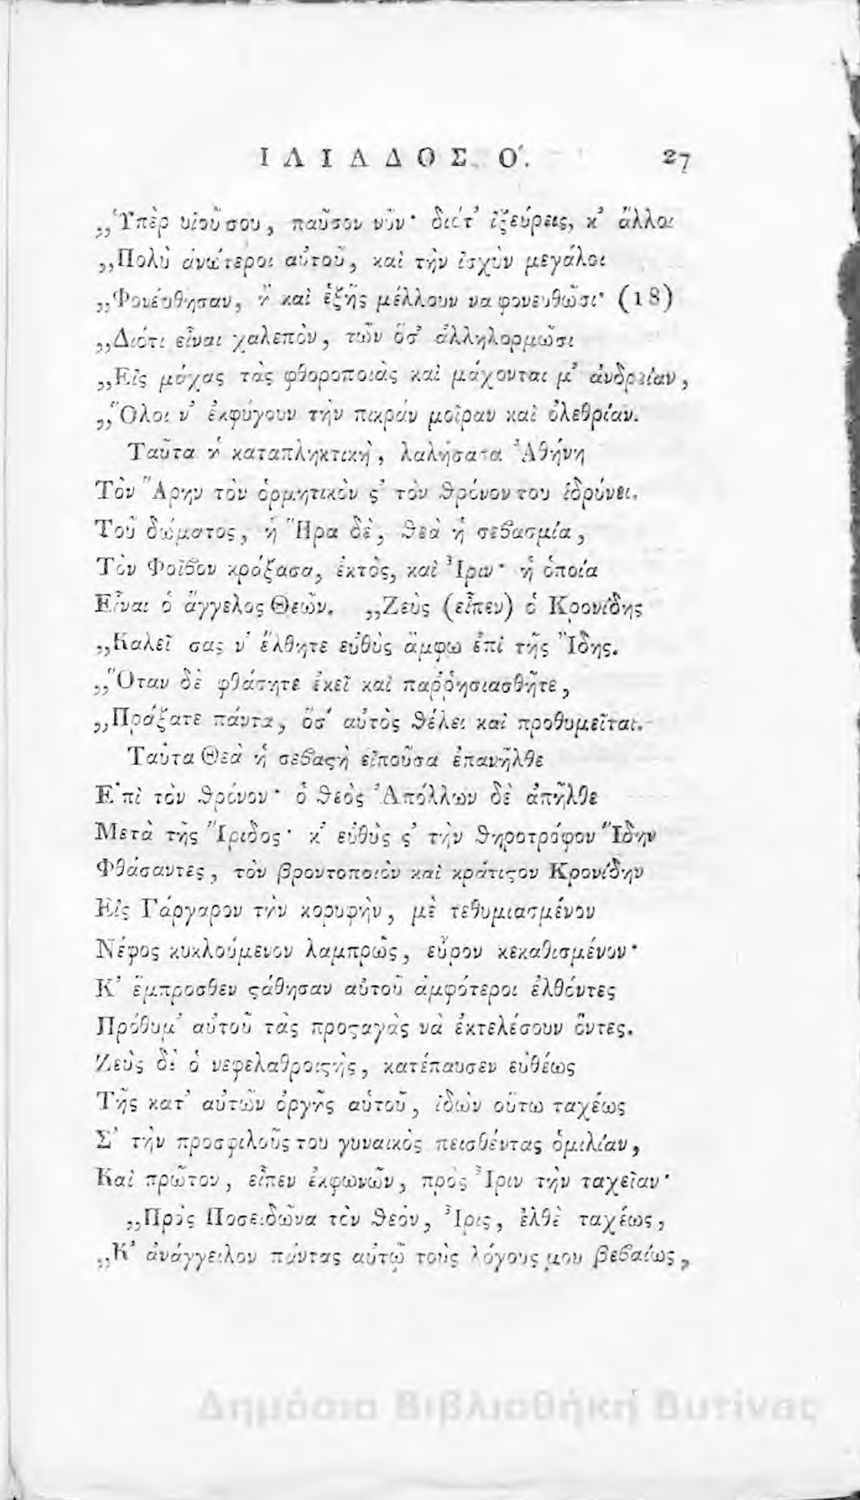 ΙΛΙΑΔΟΣ. Ο΄. 27
„Ὑπὲρ υἱοῦ σου, παῦσον νῦν· διότ' ἰξεύρεις, κ' ἄλλοι
„Πολὺ ἀνώτεροι αὐτοῦ, καὶ τὴν ἰσχὺν μεγάλοι
„Φονεύθησαν, ἢ καὶ ἑξῆς μέλλουν να φονευθῶσι· (18)
„Διότι εἶναι χαλεπὸν, τῶν ὅσ' ἀλληλορμῶσι
„Εἰς μάχας τὰς φθοροποιὰς καὶ μάχονται μ' ἀνδρείαν,
„Ὅλοι ν' ἐκφύγουν τὴν πικρὰν μοῖραν καὶ ὀλεθρίαν.
Ταῦτα ἡ καταπληκτικὴ, λαλήσασα Ἀθήνη
Τὸν Ἄρην τὸν ὁρμητικὸν ς' τὸν θρόνον του ἱδρύνει.
Τοῦ δώματος, ἡ Ἥρα δὲ, θεὰ ἡ σεβασμία,
Τὸν Φοῖβον κράξασα, ἐκτὸς, καὶ Ἶριν· ἡ ὁποία
Εἶναι ὁ ἄγγελος Θεῶν. „Ζεὺς (εἶπεν) ὁ Κρονίδης
„Καλεῖ σας ν' ἔλθητε εὐθὺς ἄμφω ἐπὶ τῆς Ἴδης.
„Ὅταν δὲ φθάσητε ἐκεῖ καὶ παῤῥησιασθῆτε,
„Πράξατε πάντα, ὅσ' αὐτὸς θέλει καὶ προθυμεῖται.
Ταῦτα Θεὰ ἡ σεβαςὴ εἰποῦσα ἐπανῆλθε
Ἐπὶ τὸν θρόνον· ὁ θεὸς Ἀπόλλων δὲ ἀπῆλθε
Μετὰ τῆς Ἴριδος· κ' εὐθὺς ς' τὴν θηροτρόφον Ἴδην
Φθάσαντες, τὸν βροντοποιὸν καὶ κράτιςον Κρονίδην
Εἰς Γάργαρον τὴν κορυφὴν, μὲ τεθυμιασμένον
Νέφος κυκλούμενον λαμπρῶς, εὗρον κεκαθισμένον·
Κ' ἔμπροσθεν ςάθησαν αὐτοῦ ἀμφότεροι ἐλθόντες
Πρόθυμ' αὐτοῦ τὰς προςαγὰς νὰ ἐκτελέσουν ὄντες.
Ζεὺς δὲ ὁ νεφελαθροιςὴς, κατέπαυσεν εὐθέως
Τῆς κατ' αὐτῶν ὀργῆς αὑτοῦ, ἰδὼν οὕτω ταχέως
Σ' τὴν προσφιλοῦς του γυναικὸς πεισθέντας ὁμιλίαν,
Καὶ πρῶτον, εἶπεν ἐκφωνῶν, πρὸς Ἶριν τὴν ταχεῖαν·
„Πρὸς Ποσειδῶνα τὸν θεὸν, Ἶρις, ἐλθὲ ταχέως,
„Κ' ἀνάγγειλον πάντας αὐτῷ τοὺς λόγους μου βεβαίως,
Δημόσια Βιβλιοθήκη Βυτίνας